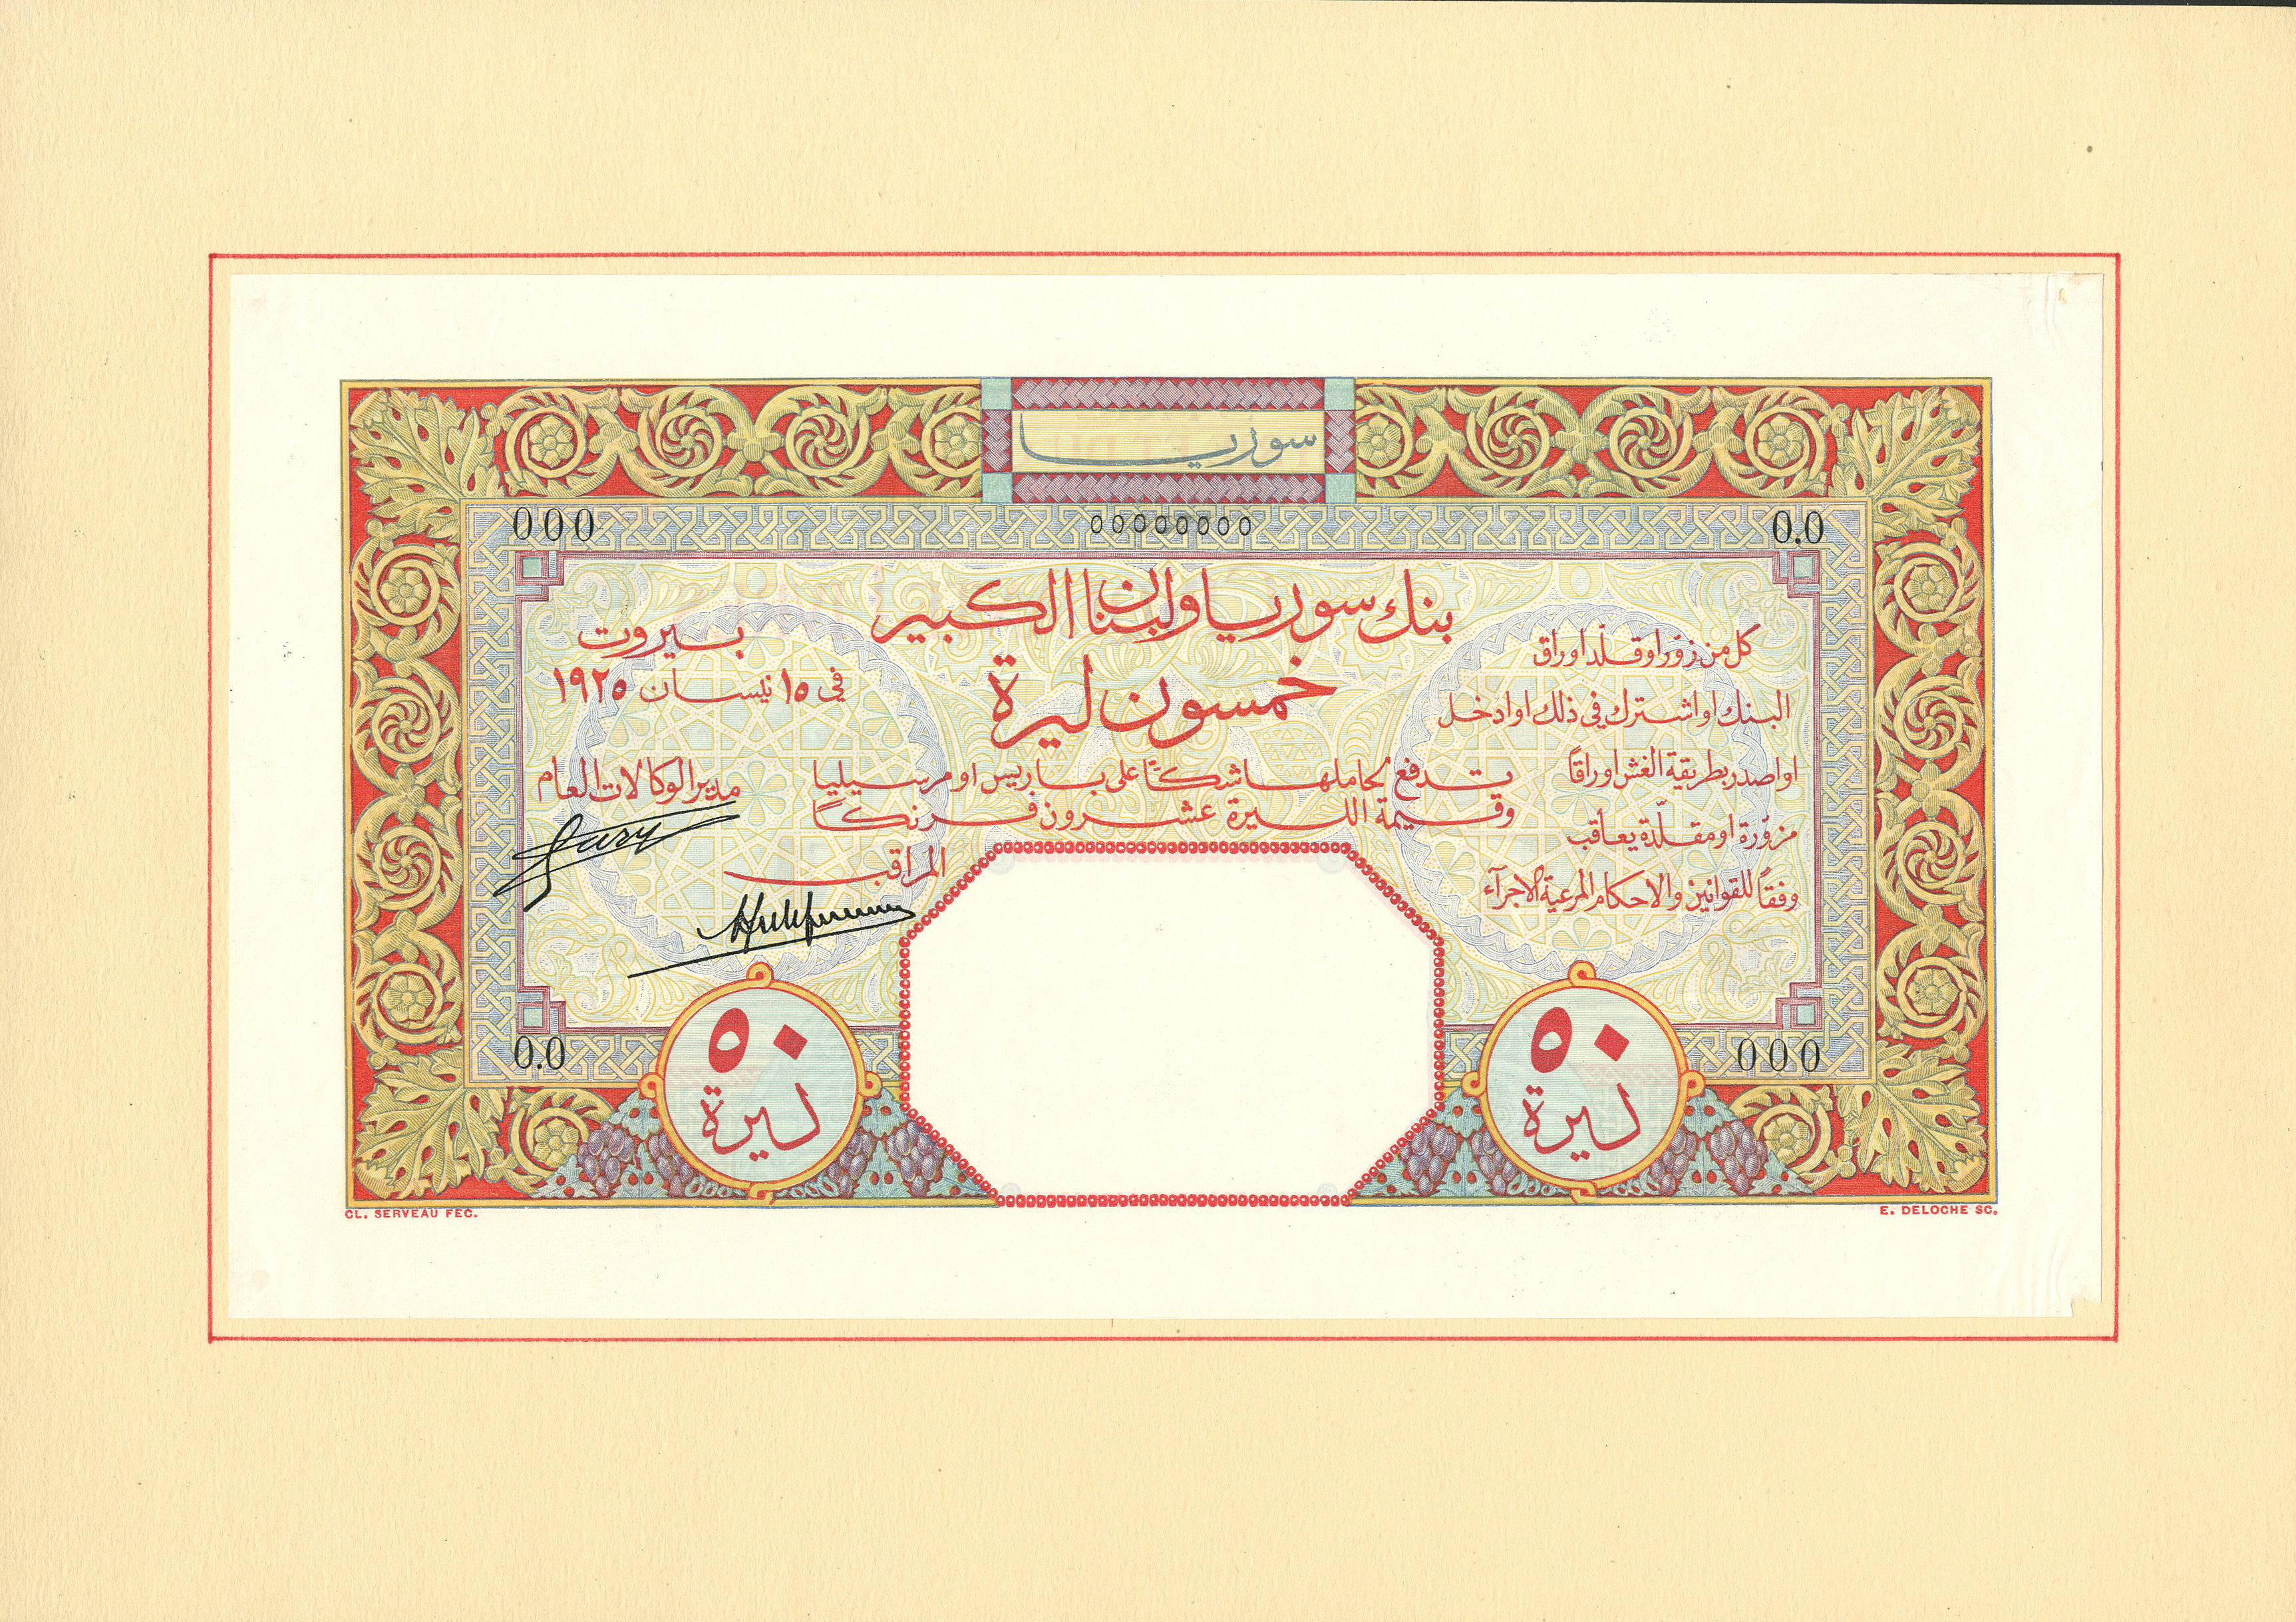 سوريا
000
00000000
0.0
بنك سوريا ولبنان الكبير
خمسون ليرة
تدفع لحاملها شكًا على باريس او مرسيليا
وقيمة الليرة عشرون فرنكًا
كل من زوّر او قلّد اوراق
البنك او اشترك في ذلك او ادخل
او اصدر بطريقة الغش اوراقًا
مزوّرة او مقلّدة يعاقب
وفقًا للقوانين والاحكام المرعية الاجرآء
بيروت
في ١٥ نيسان ١٩٢٥
مدير الوكالات العام
المراقب
0.0
000
٥٠
ليرة
٥٠
ليرة
CL. SERVEAU FEC.
E. DELOCHE SC.